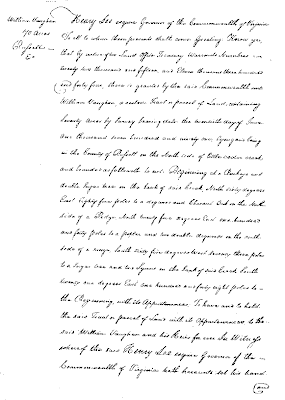 William Vaughan
70 Acres
Russell
Ex
Henry Lee esquire Governor of the Commonwealth of Virginia
To all to whom these presents shall come Greeting Know ye,
that by virtue of Land Office Treasury Warrants Number
twenty two thousand and fifteen, and Eleven thousand three hundred
and forty four, there is granted by the said Commonwealth unto
William Vaughan a certain Tract or parcel of Land, containing
Seventy Acres by Survey bearing date the twentieth day of June
One thousand seven hundred and ninety one lying and being
in the County of Russell on the North side of creek
and bounded as followeth to wit. Beginning at a Buckeye and
double Sugar tree on the bank of said Creek, North sixty degrees
East Eighty five poles to a and Chesnut Oak in the
side of a Ridge North twenty five degrees East one hundred
and forty poles to a poplar and two double dogwoods on the south
side of a ridge, South sixty five degrees West twenty three poles
to a Sugar tree and two Lynns on the bank of said creek South
twenty one degrees East one hundred and forty eight poles to
the Beginning, with its Appurtenances. To have and to hold
the said Tract or parcel of Land with its Appurtenances to the
said William Vaughan and his Heirs forever In Witness
whereof the said Henry Lee esquire Governor of the
Commonwealth of Virginia hath hereunto set his hand
and